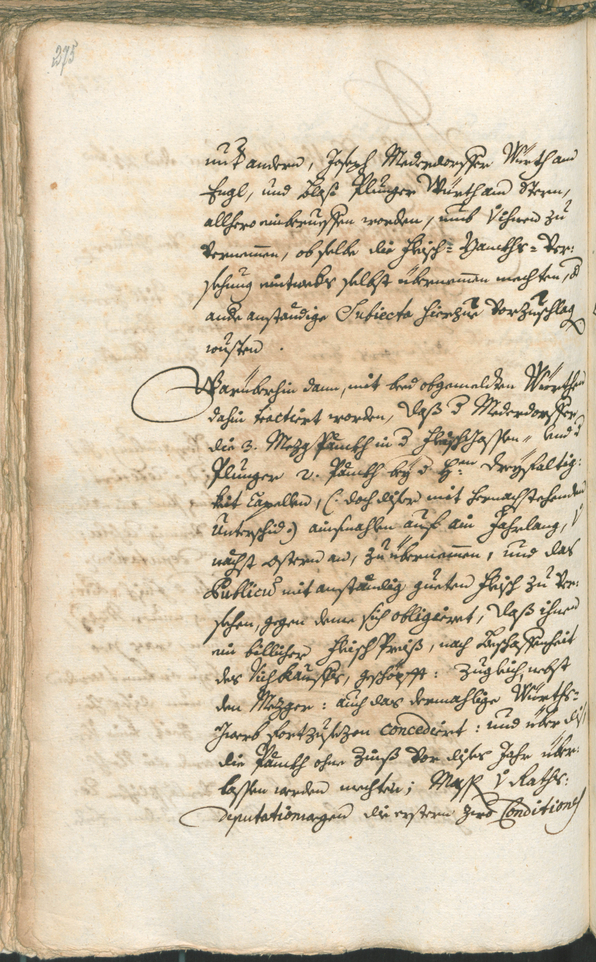 275
und andern, Joseph Mederdorffer Würth am
Engl, und Blasi Plunger Würth am Stern,
allhero einberueffen worden, umb v. ihnen zu
vernemmen, ob selbe die Fleisch=Panckhs=Ver:
sehung eintweders selbst übernemmen mechten, od
ande anständige Subiecta hierzue vorzuschlagen
wusten.
Warüberhin dann, mit bed obgemelden Würthen
dahin tractiert worden, daß d Mederdorffer
die 3. Mezg Pänckh in d Fleischgassen, und d
Plunger 2. Pänckh bey d Hey: Dreyfaltig:
keit Capellen, (: doch diser mit hernachstehenden
Unterschid :) ainsmahlen auf ain Jahrlang, v
negst ostern an, zu übernemmen, und das
Publicũ mit anständig gueten Fleisch zu ver:
sehen, gegen deme sich obligiert, daß ihnen
ein billicher Fleisch Preiß, nach Beschaffenheit
des Vichkauffs, geschöpfft: zugleich nebst
den Mezger: auch das dermahlige Würths=
Gwerb fortzusezen concediert: und über diß,
die Pänckh ohne Zinß vor dises Jahr über:
lassen werden mechten; v Raths:
Deputationwegen die erstern zwo Conditiones